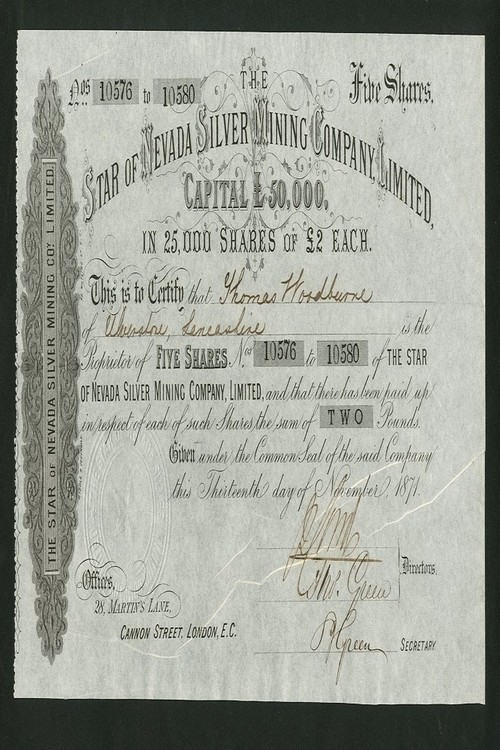 Nos 10576 to 10580
Five Shares.
THE
STAR OF NEVADA SILVER MINING COMPANY, LIMITED,
CAPITAL £50,000,
IN 25,000 SHARES OF £2 EACH.
This is to Certify that Thomas Woodburne
of Ulverstone, Lancashire is the
Proprietor of FIVE SHARES Nos 10576 to 10580 of THE STAR
OF NEVADA SILVER MINING COMPANY, LIMITED, and that there has been paid up
in respect of each of such Shares the sum of TWO Pounds.
Given under the Common Seal of the said Company
this Thirteenth day of November, 1871.
Directors.
Green
Offices,
28, MARTIN'S LANE,
CANNON STREET, LONDON, E.C.
Green
SECRETARY
THE STAR OF NEVADA SILVER MINING COY. LIMITED.